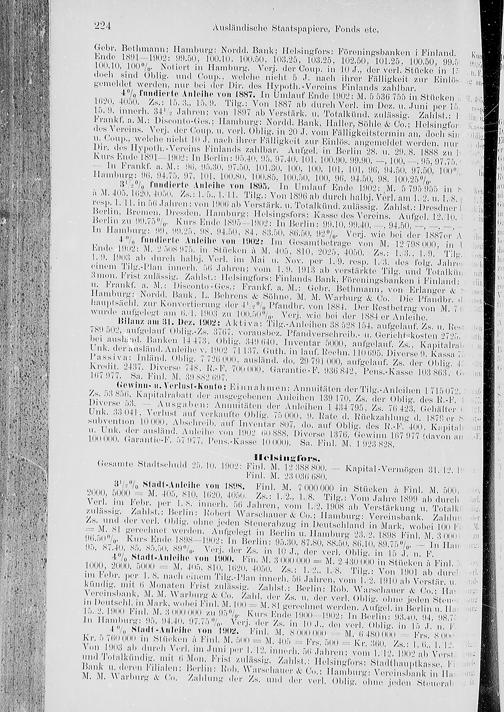 224 Ausländische Staatspapiere, Fonds etc.
Gebr. Bethmann; Hamburg: Nordd. Bank; Helsingfors: Föreningsbanken i Finland.
Ende 1891—1902: 99.50, 100.10, 100.50, 103.25, 103.25, 102.50, 101.25, 100.50,
100.10, 100%. Notiert in Hamburg. Verj. der Coup. in 10 J., der verl. Stücke in
doch sind Oblig. und Coup., welche nicht 5 J. nach ihrer Fälligkeit zur Einlös-
gemeldet werden, nur bei der Dir. des Hypoth.-Vereins Finlands zahlbar.
4% fundierte Anleihe von 1887. In Umlauf Ende 1902: M. 5 536 755 in Stücken
1620, 4050. Zs.: 15./3., 15./9. Tilg.: Von 1887 ab durch Verl. im Dez. u. Juni per 15.
15./9. innerh. Jahren; von 1897 ab Verstärk. u. Totalkünd. zulässig. Zahlst.:
Frankf. a. M.: Disconto-Ges.; Hamburg: Nordd. Bank, Haller, Söhle & Co.; Helsingfor
des Vereins. Verj. der Coup. u. verl. Oblig. in 20 J. vom Fälligkeitstermin an, doch sin
u. Coup., welche nicht 10 J. nach ihrer Fälligkeit zur Einlös. angemeldet werden, nur
Dir. des Hypoth.-Vereins Finlands zahlbar. Aufgel. in Berlin 28. u. 29./8. 1888 zu
Kurs Ende 1891—1902: In Berlin: 95.40, 95, 97.40, 101, 100.90, 99.90, —, 100, —, 95, 97.75,
— In Frankf. a. M.: 96, 95.30, 97.50, 101.30, 100, 100, 101, 101, 96, 94.50, 97.50, 100%.
Hamburg: 96, 94.75, 97, 101, 100.80, 100.85, 100.50, 100, 96, 94.50, 98, 100.25%.
3½% fundierte Anleihe von 1895. In Umlauf Ende 1902: M. 5 795 955 in
à M. 405, 1620, 4050. Zs.: 1./5., 1./11. Tilg.: Von 1896 ab durch halbj. Verl. am 1./2. u. 1./8.
resp. 1./11. in 56 Jahren; von 1906 ab Verstärk. u. Totalkünd. zulässig. Zahlst.: Dresdner
Berlin, Bremen, Dresden, Hamburg; Helsingfors: Kasse des Vereins. Aufgel. 12./10.
Berlin zu 99.75%. Kurs Ende 1895—1902: In Berlin: 99.10, 99.40, —, 94.50, —, —, —,
In Hamburg: 99, 99.25, 98, 94.50, 84, 83.50, 86.50, 92%. Verj. wie bei der 1887er A
4% fundierte Anleihe von 1902: Im Gesamtbetrage von M. 12 798 000, in
Ende 1902: M. 2 508 975, in Stücken à M. 405, 810, 2025, 4050. Zs.: 1./3., 1./9. Tilg.
1./9. 1903 ab durch halbj. Verl. im Mai u. Nov. per 1./9. resp. 1./3. des folg. Jahres
einem Tilg.-Plan innerh. 56 Jahren; vom 1./9. 1913 ab verstärkte Tilg. und Totalkün
3mon. Frist zulässig. Zahlst.: Helsingfors: Finlands Bank, Föreningsbanken i Finland;
u. Frankf. a. M.: Disconto-Ges.; Frankf. a. M.: Gebr. Bethmann, von Erlanger &
Hamburg: Nordd. Bank, L. Behrens & Söhne, M. M. Warburg & Co. Die Pfandbr. d
hauptsächl. zur Konvertierung der 4½% Pfandbr. von 1884. Der Restbetrag von M. 7
wurde aufgelegt am 6./1. 1903 zu 100.50%. Verj. wie bei der 1884er Anleihe.
Bilanz am 31. Dez. 1902: Aktiva: Tilg.-Anleihen 38 528 154, aufgelauf. Zs. u. Res
789 502, aufgelauf. Oblig.-Zs. 3767, vorausbez. Pfandverschreib.- u. Gericht-kosten 2725,
bei ausländ. Banken 14 473, Oblig. 349 640, Inventar 5000, aufgelauf. Zs., Kapitalrab
Unk. der ausländ. Anleihe v. 1902 71 137, Guth. in lauf. Rechn. 110 695, Diverse 9, Kassa
Passiva: Inländ. Oblig. 7 726 000, ausländ. do. 29 791 000, aufgelauf. Zs. der Oblig.
Kreslit. 2437, Diverse 748, R.-F. 700 000, Garantie-F. 936 842, Pens.-Kasse 103 863, G
167 977. Sa. Finl. M. 39 882 697.
Gewinn- u. Verlust-Konto: Einnahmen: Annuitäten der Tilg.-Anleihen 1 715 072,
Zs. 53 856, Kapitalrabatt der ausgegebenen Anleihen 139 170, Zs. der Oblig. des R.-F.
Diverse 53. — Ausgaben: Annuitäten der Anleihen 1 434 795, Zs. 76 423, Gehälter
Unk. 33 041, Verlust auf verkaufte Oblig. 75 000, 9. Rate d. Rückzahlung d. 1879er S
subvention 10 000, Abschreib. auf Inventar 807, do. auf Oblig. des R.-F. 400, Kapital
u. Unk. der ausländ. Anleihe von 1902 60 888, Diverse 1376, Gewinn 167 977 (davon an
100 000, Garantie-F. 57 977, Pens.-Kasse 10 000). Sa. Finl. M. 1 923 828.
Helsingfors.
Gesamte Stadtschuld 25./10. 1902: Finl. M. 12 388 800. — Kapital-Vermögen 31./12.
Finl. M. 23 036 680.
3½% Stadt-Anleihe von 1898. Finl. M. 7 000 000 in Stücken à Finl. M. 500,
2000, 5000 = M. 405, 810, 1620, 4050. Zs.: 1./2., 1./8. Tilg.: Vom Jahre 1899 ab durch
Verl. im Febr. per 1./8. innerh. 56 Jahren, vom 1./2. 1908 ab Verstärkung u. Totalk
zulässig. Zahlst.: Berlin: Robert Warschauer & Co.; Hamburg: Vereinsbank. Zahlun
Zs. und der verl. Oblig. ohne jeden Steuerabzug in Deutschland in Mark, wobei 100 F
= M. 81 gerechnet werden. Aufgelegt in Berlin u. Hamburg 23./2. 1898 Finl. M. 3 000
96.50%. Kurs Ende 1898—1902: In Berlin: 95.30, 87.80, 88.50, 86.10, 89.75%. — In Ham
95, 87.40, 85, 85.50, 89%. Verj. der Zs. in 10 J., der verl. Oblig. in 15 J. n. F.
4% Stadt-Anleihe von 1900. Finl. M. 3 000 000 = M. 2 430 000 in Stücken à Finl.
1000, 2000, 5000 = M. 405, 810, 1620, 4050. Zs.: 1./2., 1./8. Tilg.: Von 1901 ab durch
im Febr. per 1./8. nach einem Tilg.-Plan innerh. 56 Jahren, vom 1./2. 1910 ab Verstär. u.
kündig. mit 6 Monaten Frist zulässig. Zahlst.: Berlin: Rob. Warschauer & Co.; Ha
Vereinsbank, M. M. Warburg & Co. Zahlung der Zs. u. der verl. Oblig. ohne jeden Steu
in Deutschl. in Mark, wobei Finl. M. 100 = M. 81 gerechnet werden. Aufgel. in Berlin u. Ha
15./2. 1900 Finl. M. 3 000 000 zu 95%. Kurs Ende 1900—1902: In Berlin: 93.40, 94, 98.7
In Hamburg: 95, 94.40, 97.75%. Verj. der Zs. in 10 J., der verl. Oblig. in 15 J. n. F.
4% Stadt-Anleihe von 1902. Finl. M. 8 000 000 = M. 6 480 000 = Frs. 8 000
Kr. 5 760 000 in Stücken à Finl. M. 500 = M. 405 = Frs. 500 = Kr. 360. Zs.: 1./6., 1./12.
Von 1903 ab durch Verl. im Juni per 1./12. innerh. 56 Jahren; vom 1./12. 1902 ab Verst
und Totalkündig. mit 6 Mon. Frist zulässig. Zahlst.: Helsingfors: Stadthauptkasse,
Bank u. deren Filialen; Berlin: Rob. Warschauer & Co.; Hamburg: Vereinsbank in Ha
M. M. Warburg & Co. Zahlung der Zs. und der verl. Oblig. ohne jeden Steuerab